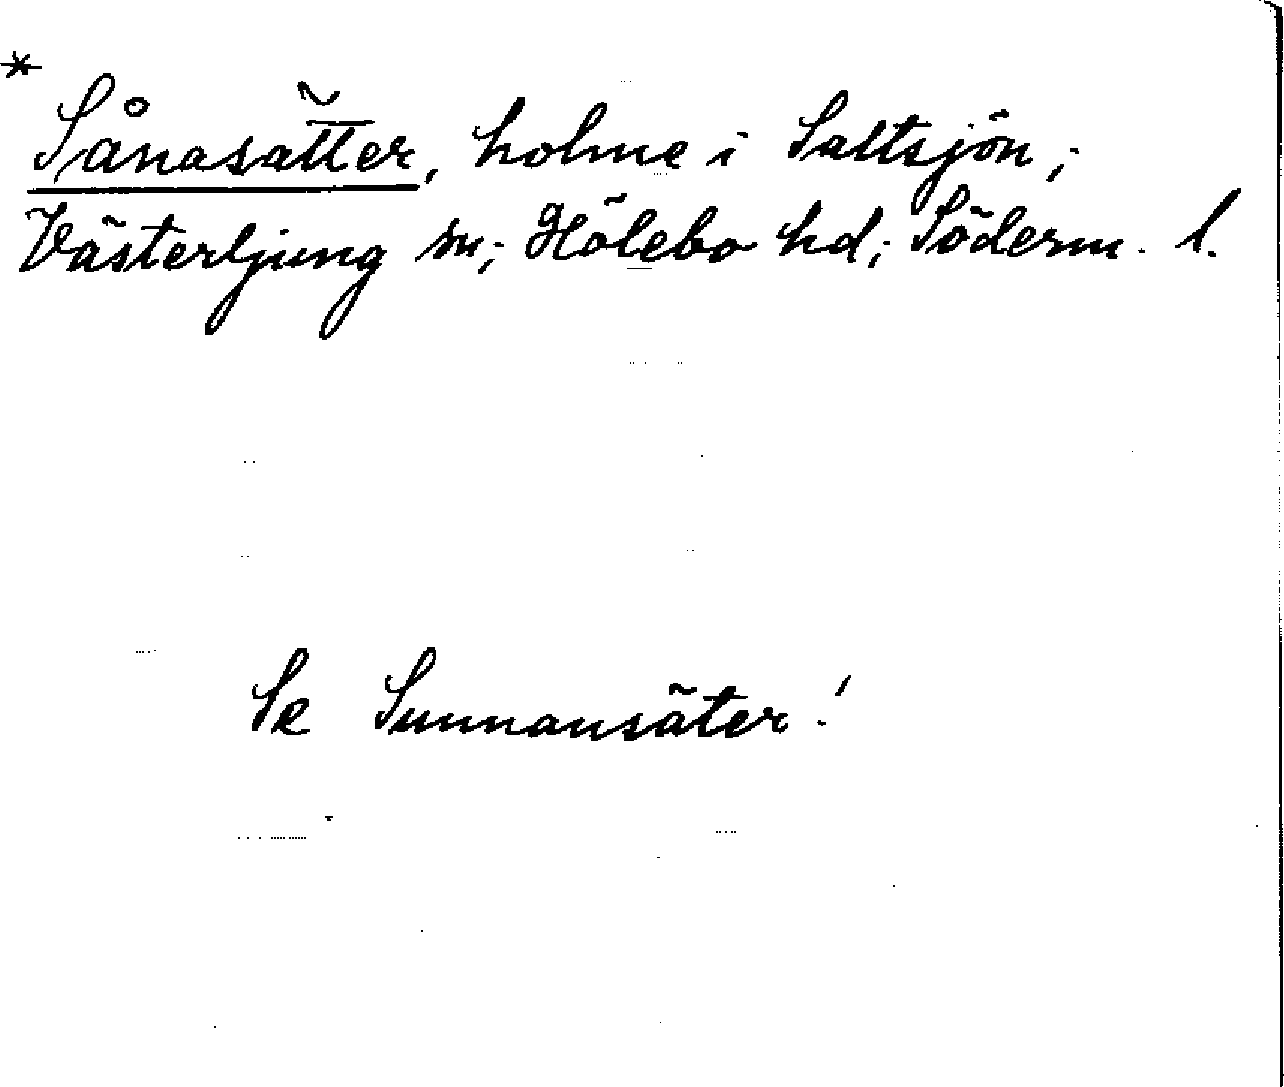 * Sånasätter, holme i Saltsjön;
Västerljung sn; Hölebo hd; Söderm. l.
Se Sunnansäter!